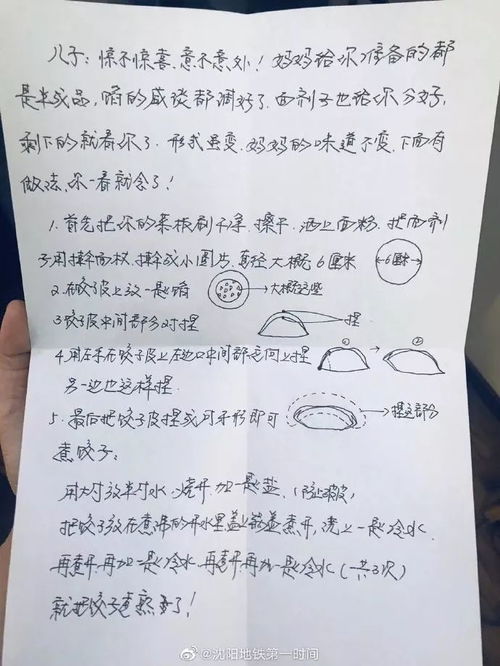 儿子：惊不惊喜、意不意外！妈妈给你准备的都
是半成品，馅的咸淡都调好了，面剂子也给你分好，
剩下的就看你了．形式虽变，妈妈的味道不变，下面有
做法，你一看就会了！
1. 首先把你的菜板刷干净、擦平，洒上面粉，把面剂
子用擀面杖，擀成小圆片，直径大概6厘米
←6厘米→
2. 在饺子皮上放一些馅
→大概这些
3 饺子皮中间部分对捏
捏
4. 用左手在饺子皮上左边口中间部位向上捏
① ②
另一边也这样捏
5. 最后把饺子皮捏成月牙形即可
→捏这部分
煮饺子：
用大勺放半勺水，烧开，加一些盐，（防止破皮）
把饺子放在煮沸的开水里盖上锅盖煮开，浇上一些冷水
再煮开，再加一些冷水，再煮开再加一些冷水（一共3次）
就把饺子煮熟了！
@沈阳地铁第一时间